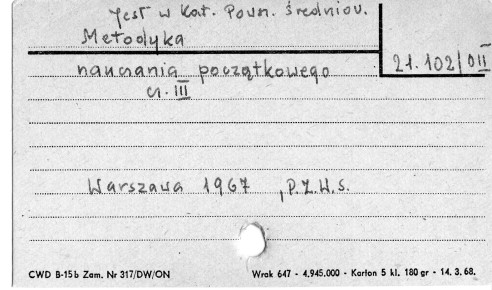 Jest w Kat. Powsz. średniow.
Metodyka
21.102/DII
nauczania początkowego
cz. III
Warszawa 1967, P.Z.W.S.
CWD B-15b Zam. Nr 317/DW/ON
Wrak 647 - 4.945.000 - Karton 5 kl. 180 gr - 14. 3. 68.